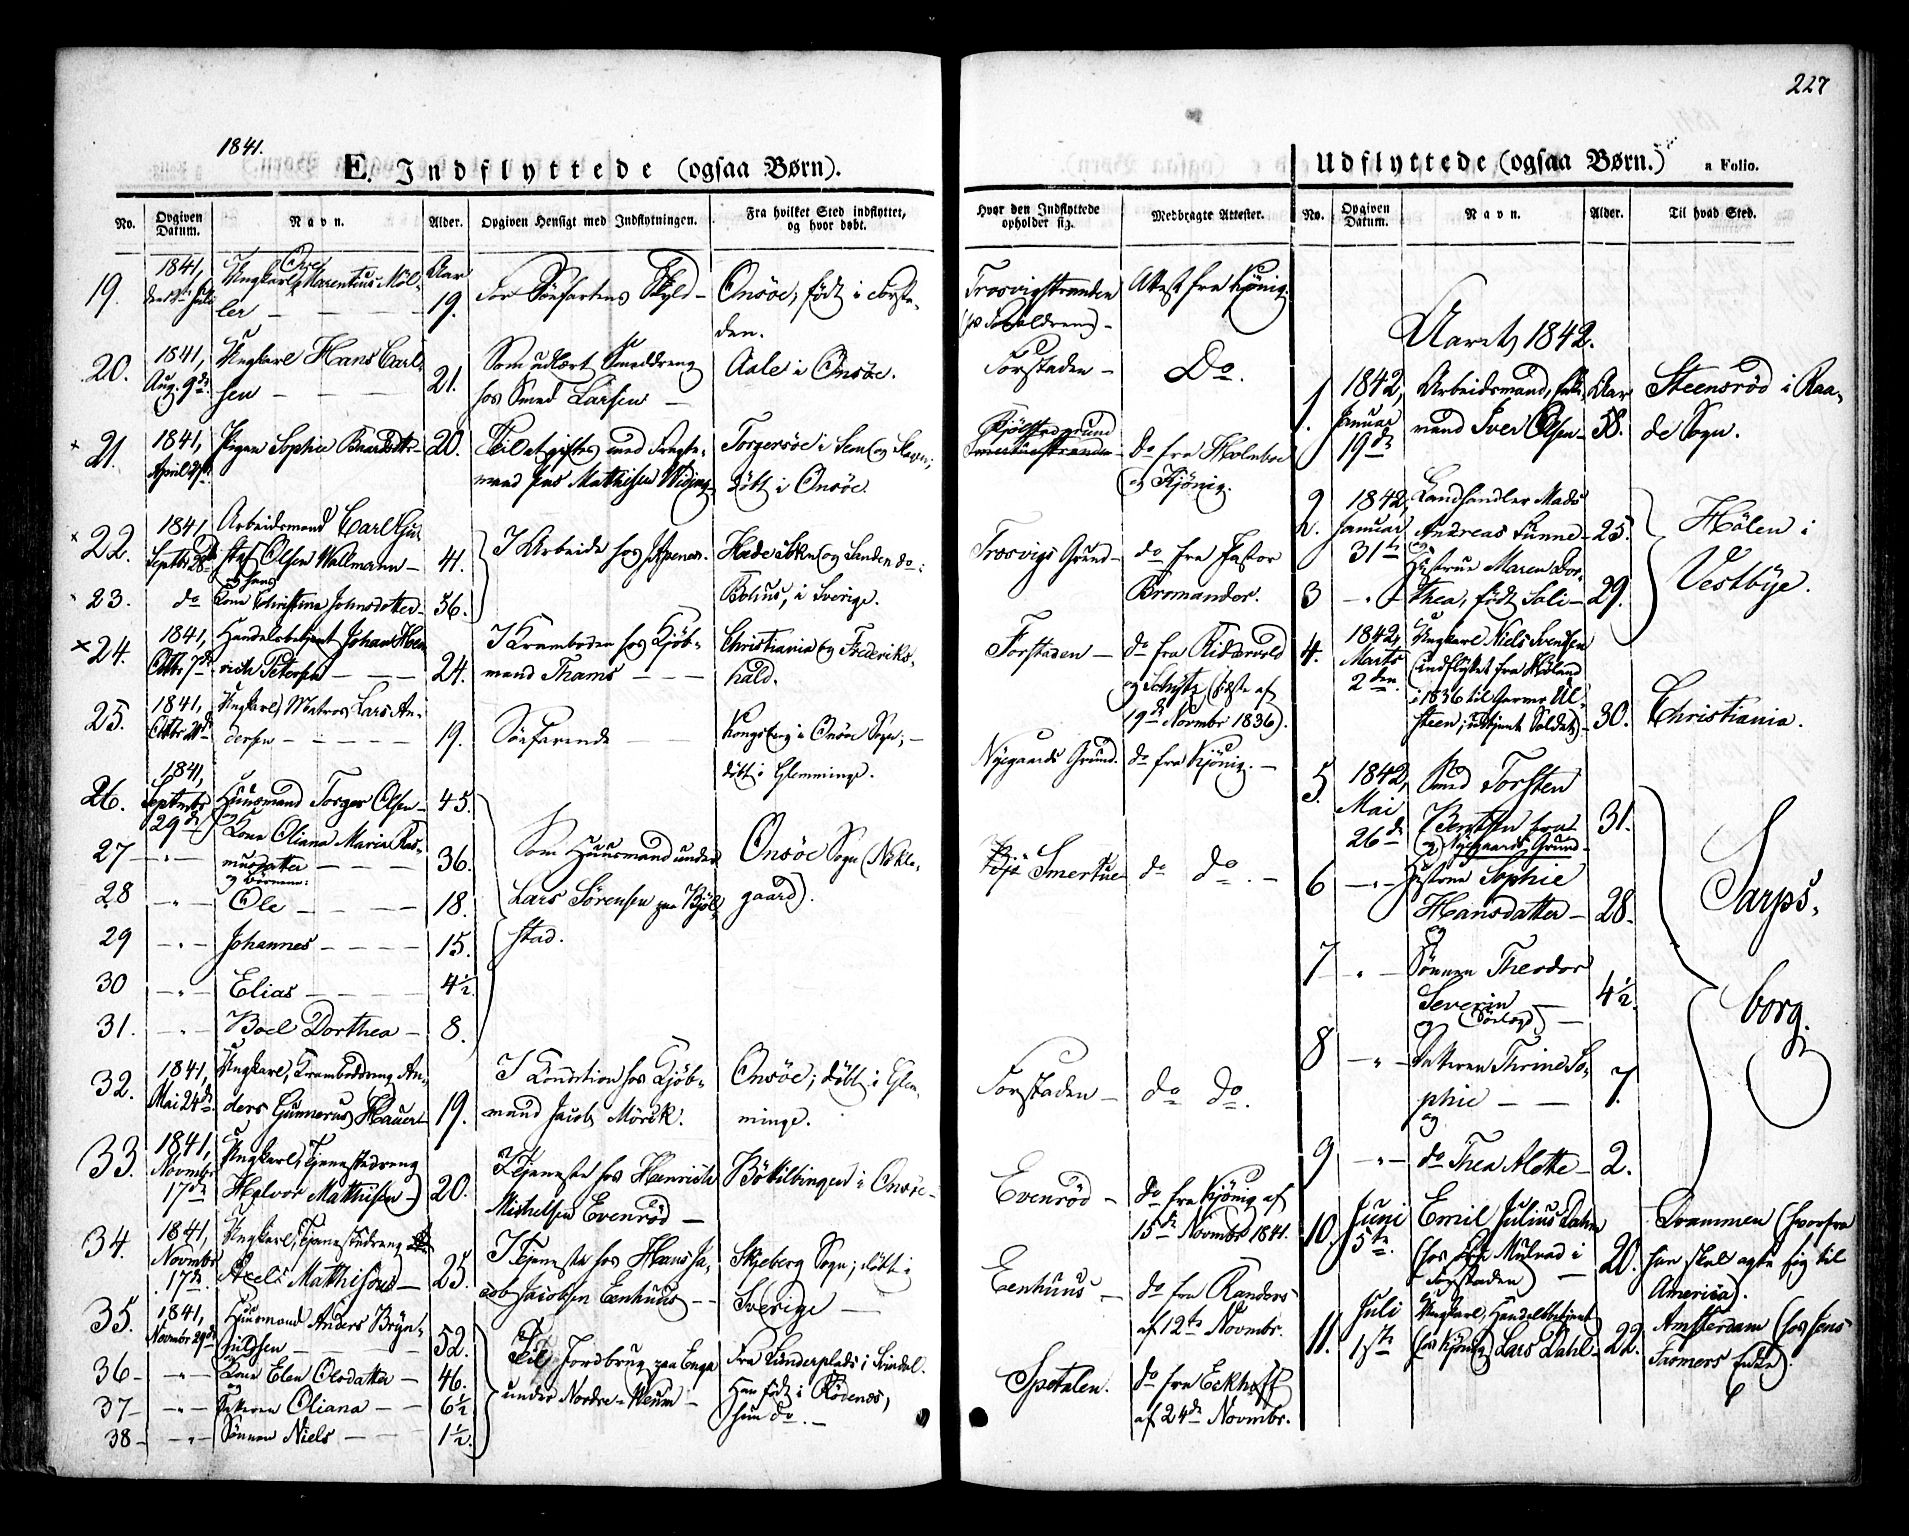 227
1841.
E. Indflyttede (ogsaa Børn).
No. Opgiven Datum. Navn. Alder. Opgiven Hensigt med Indflytningen. Fra hvilket Sted indflyttet, og hvor døbt.
Hvor den Indflyttede opholder sig. Medbragte Attester.
19. 1841, Juli Ungkarl Marentius Möl-
ler Aar 19. For Söefartens Skyld Onsöe, födt i Forsta-
den. Attest fra Kjönig.
20. 1841, Aug. 9de Ungkarl Hans Carl-
sen 21. Som udlært Smeddreng
hos Smed Larsen Aale i Onsöe. Forstaden Do.
21. 1841, April Pigen Sophie 20. Til at giftes med
mand Jens Mathisen Torgersöe i
döbt i Onsöe. do fra Holmboe
og Kjönig.
22. 1841 Septbr 28de Arbeidsmand Carl
Olsen Wallmann 41. I Arbeide hos
Bohus, i Sverige. Trosvigs Grund do fra Pastor
Bromander.
23. do Kone Christine Johnsdatter 36.
24. 1841, Octbr 7de Handelsbetjent Johan Hen-
rich Petersen 24. I Kramboden hos Kjöb-
mand Thams Christiania og Frederiks-
hald. Forstaden do fra Riddervold
og Schytz (Sidste af
19de Novmbr 1836).
25. 1841, Octbr Ungkarl, Matros Lars An-
dersen 19. Söefarende Kongsberg i Onsöe Sogn;
döbt i Glemminge. Nygaards Grund. do fra Kjönig.
26. 1841, Septmbr 29de Huusmand Torger Olsen 45. Som Huusmand under
Lars Sörensen paa Kjöl-
stad. Onsöe Sogn Smertue do do.
27 Kone Oliana Maria Ras-
musdatter 36.
og Börnene:
28 Ole 18.
29 Johannes 15.
30 Elias 4½.
31. Boel Dorthea 8.
32. 1841, Mai 24de Ungkarl, Kramboddreng An-
ders Gunnerus Hauer 19. I Condition hos Kjöb-
mand Jacob Mörck. Onsöe; döbt i Glem-
minge. Forstaden do do.
33. 1841, Novmbr 17de Ungkarl, Tjenestedreng
Halvor Mathisen 20. I Tjeneste hos Henrich
Michelsen Evenröd i Onsöe Evenröd do fra Kjönig af
15de Novmbr 1841.
34. 1841, Novmbr 17de Ungkarl, Tjenestedreng
Axel Matthison 25. I Tjeneste hos Hans Ja-
cob Jacobsen Eenhuus Skjeberg Sogn; döbt i
Sverige Eenhuus do fra Randers
af 12te Novmbr.
35. 1841, Novmbr 29de Huusmand Anders Bryn-
hildsen 52. Til Jordbrug paa Enga
under Nordre-Veum i
Han födt i Rödenæs,
hun do. Spetalen. do fra Eckhoff
af 24de Novmbr.
36 Kone Elen Olsdatter 46.
37 Datteren Oliana 6½
38 Sönnen Niels 1½.
Udflyttede (ogsaa Børn.) a Folio.
No. Opgiven Datum. Navn. Alder. Til hvad Sted.
Aaret 1842.
1. 1842, Januar 19de Arbeidsmand, Enke-
mand Iver Olsen Aar 58. Steensröd i Raa-
de Sogn.
2. 1842, Januar 31te Landhandler Mads
Andreas Sunne 25. Hölen i
Vestbye.
3 og Hustrue Maren Dor-
thea, födt 29.
4. 1842, Marts 2den. Ungkarl Niels Svendsen
(indflyttet fra Höland
i 1836 til
30. Christiania.
5. 1842, Mai 26de Smed Torsten
Berntsen fra
Nygaards Grund 31. Sarps-
borg.
6 og Hustrue Sophie
Hansdatter 28.
7 og Sönnen Theodor
Severin 4½.
8 og Datteren Thrine So-
phie 7.
9 og do Thea Alette 2.
10. Juni 5te. Emil Julius Dahm
(hos
Forstaden) 20. Drammen (hvorfra
han skal agte sig til
America).
11. Juli 1ste Ungkarl, Handelsbetjent
(hos Kjönig) Lars Dahl 22. Amsterdam (hos Jens
Enke).